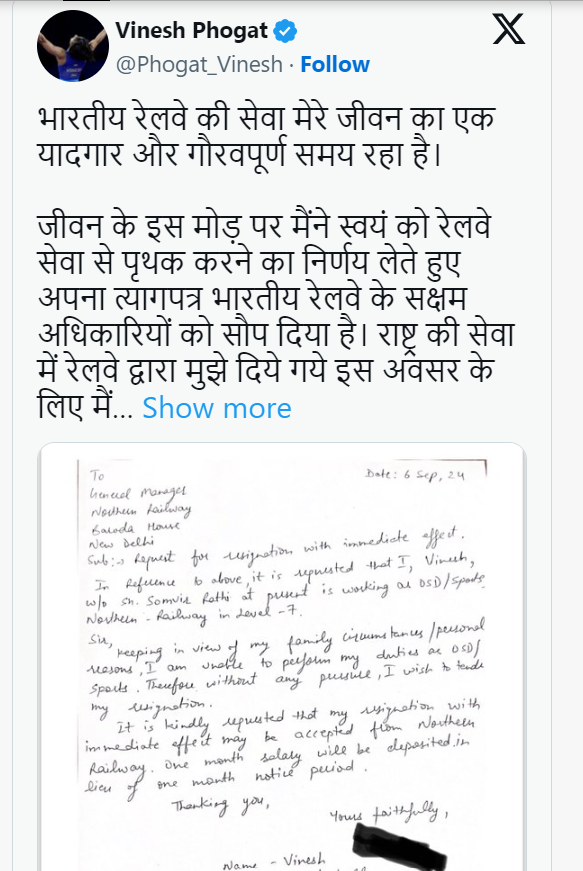 Vinesh Phogat
@Phogat_Vinesh · Follow
भारतीय रेलवे की सेवा मेरे जीवन का एक
यादगार और गौरवपूर्ण समय रहा है।
जीवन के इस मोड़ पर मैंने स्वयं को रेलवे
सेवा से पृथक करने का निर्णय लेते हुए
अपना त्यागपत्र भारतीय रेलवे के सक्षम
अधिकारियों को सौप दिया है। राष्ट्र की सेवा
में रेलवे द्वारा मुझे दिये गये इस अवसर के
लिए मैं... Show more
To
Date: 6 Sep, 24
General Manager
Northern Railway
Baroda House
New Delhi
Sub:→ Request for resignation with immediate effect.
In Reference to above, it is requested that I, Vinesh,
w/o Sh. Somvir Rathi at present is working as OSD/Sports
Northern - Railway in Level -7.
Sir,
keeping in view of my family circumstances/personal
reasons, I am unable to perform my duties as OSD/
Sports. Therefore without any pressure, I wish to tender
my resignation.
It is kindly requested that my resignation with
immediate effect may be accepted from Northern
Railway. One month salary will be deposited in
lieu of one month notice period.
Thanking you,
Yours faithfully,
Name - Vinesh